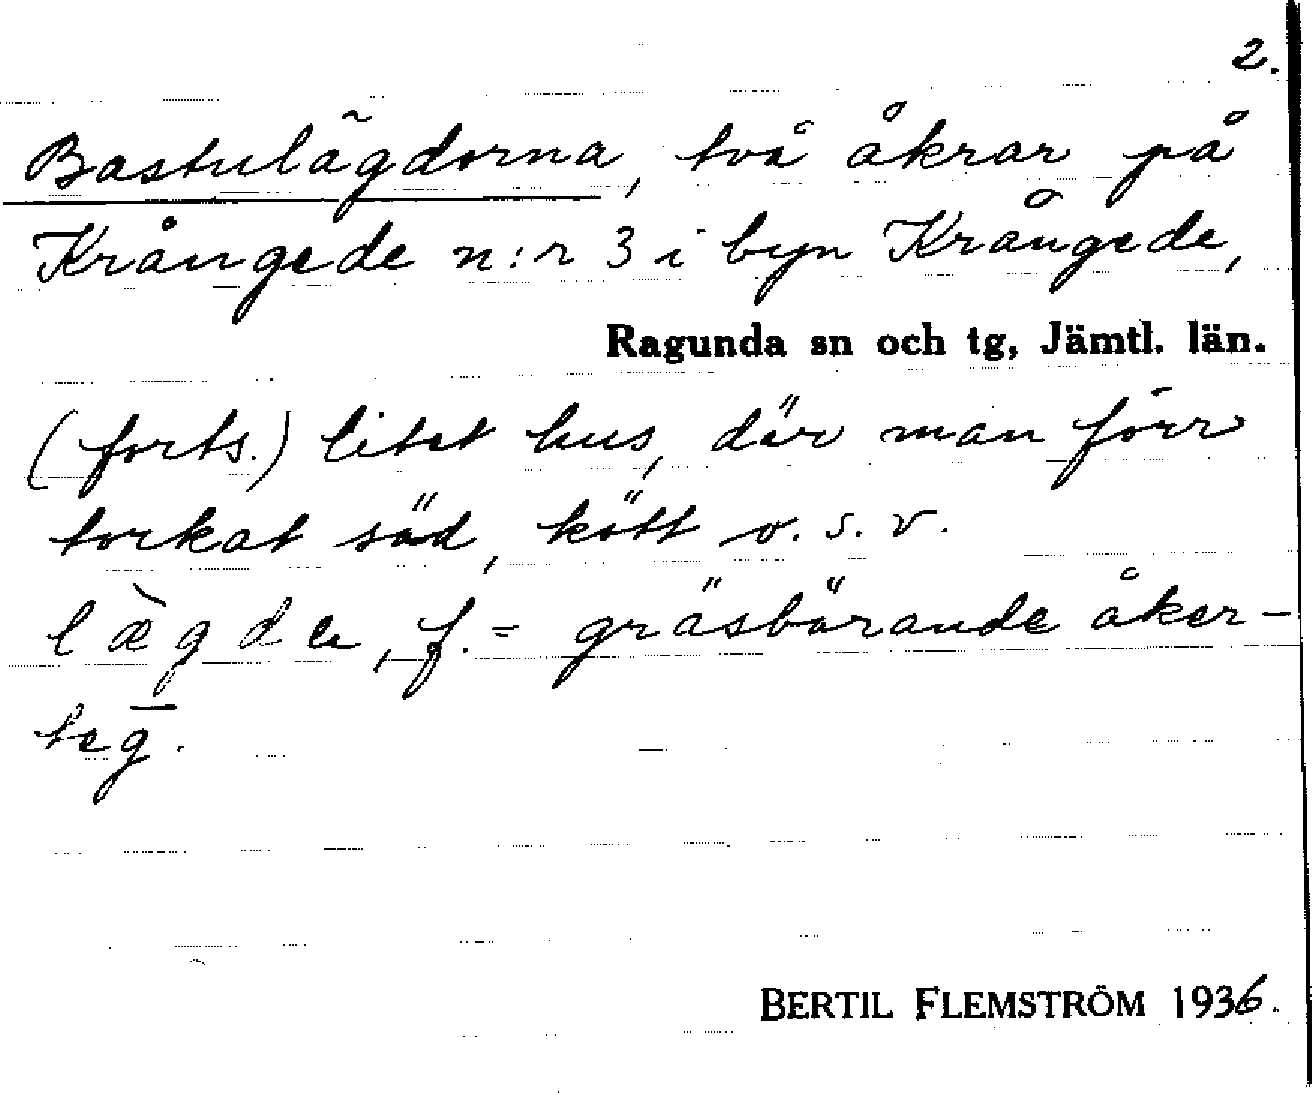 2.
Bastulägdorna, två åkrar på
Krångede n:r 3 i byn Krångede,
Ragunda sn och tg, Jämtl. län.
(forts.) litet hus, där man förr
torkat säd, kött o.s.v.
lægda, f. = gräsbärande åker-
teg.
BERTIL FLEMSTRÖM 1936.